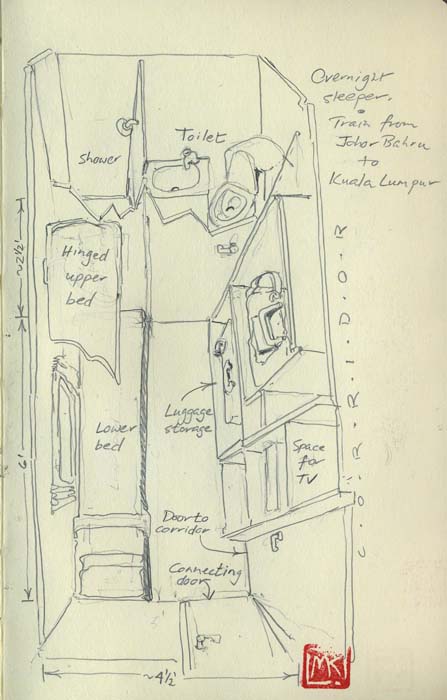 Overnight
sleeper.
Train from
Johor Bahru
to
Kuala Lumpur
Toilet
Shower
Hinged
upper
bed
~2½'
C.O.R.R.I.D.O.R
Luggage
storage
Lower
bed
Space
for
TV
6'
Door to
corridor
Connecting
door
~4½'
MK